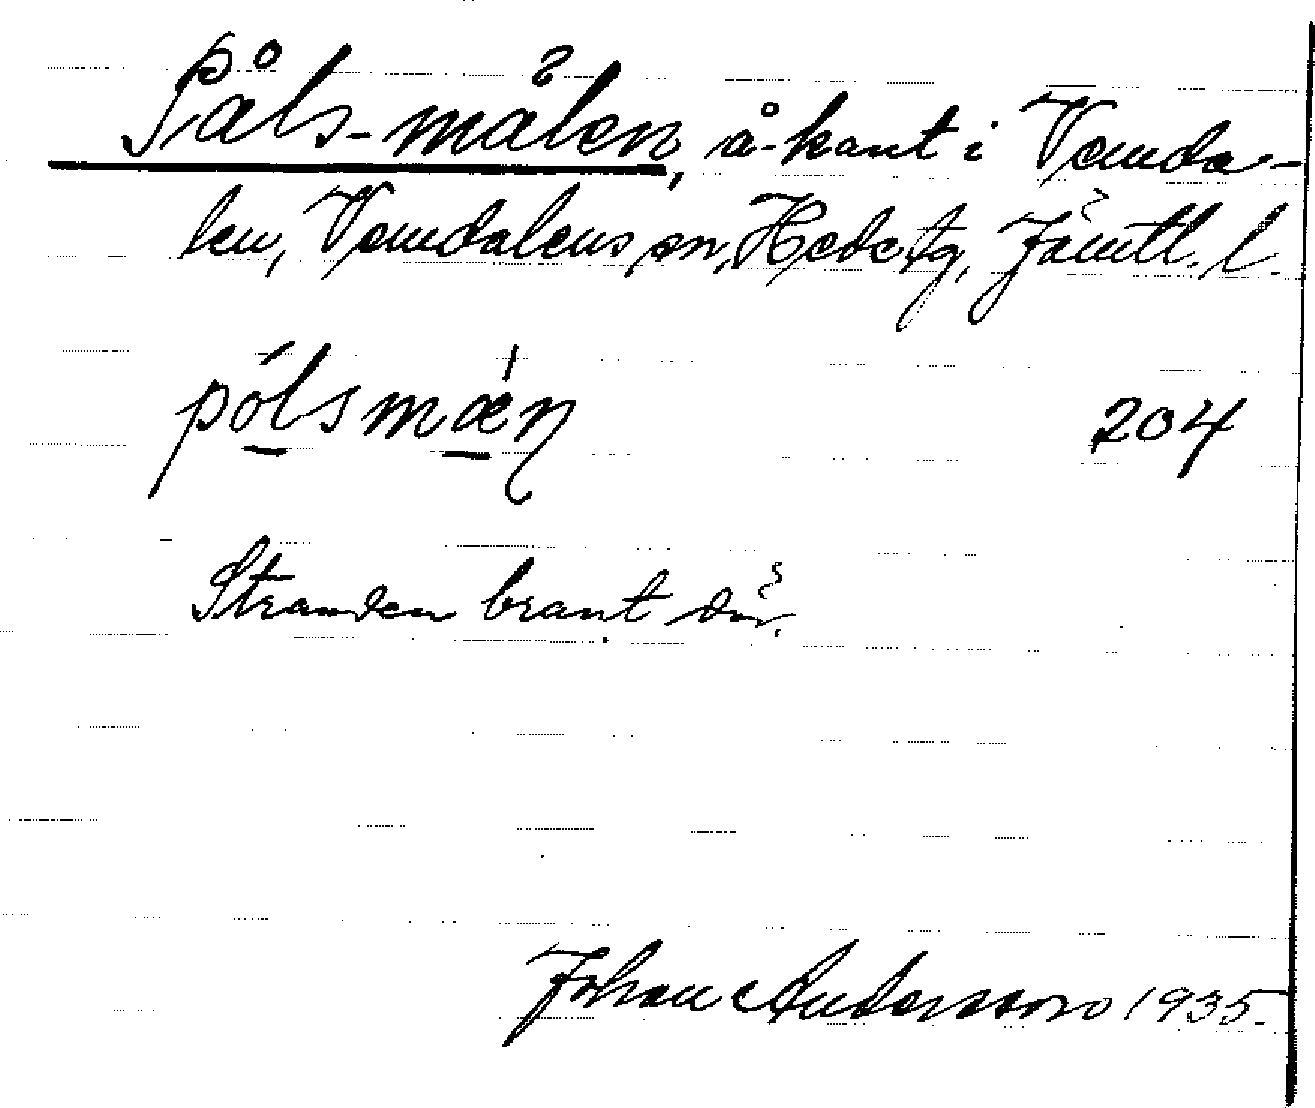 Påls-målen, å-kant i Vemda-
len, Vemdalens sn, Hede tg, Jämtl. l.
pólsmǽn 204
Stranden brant där.
Johan Andersson 1935.